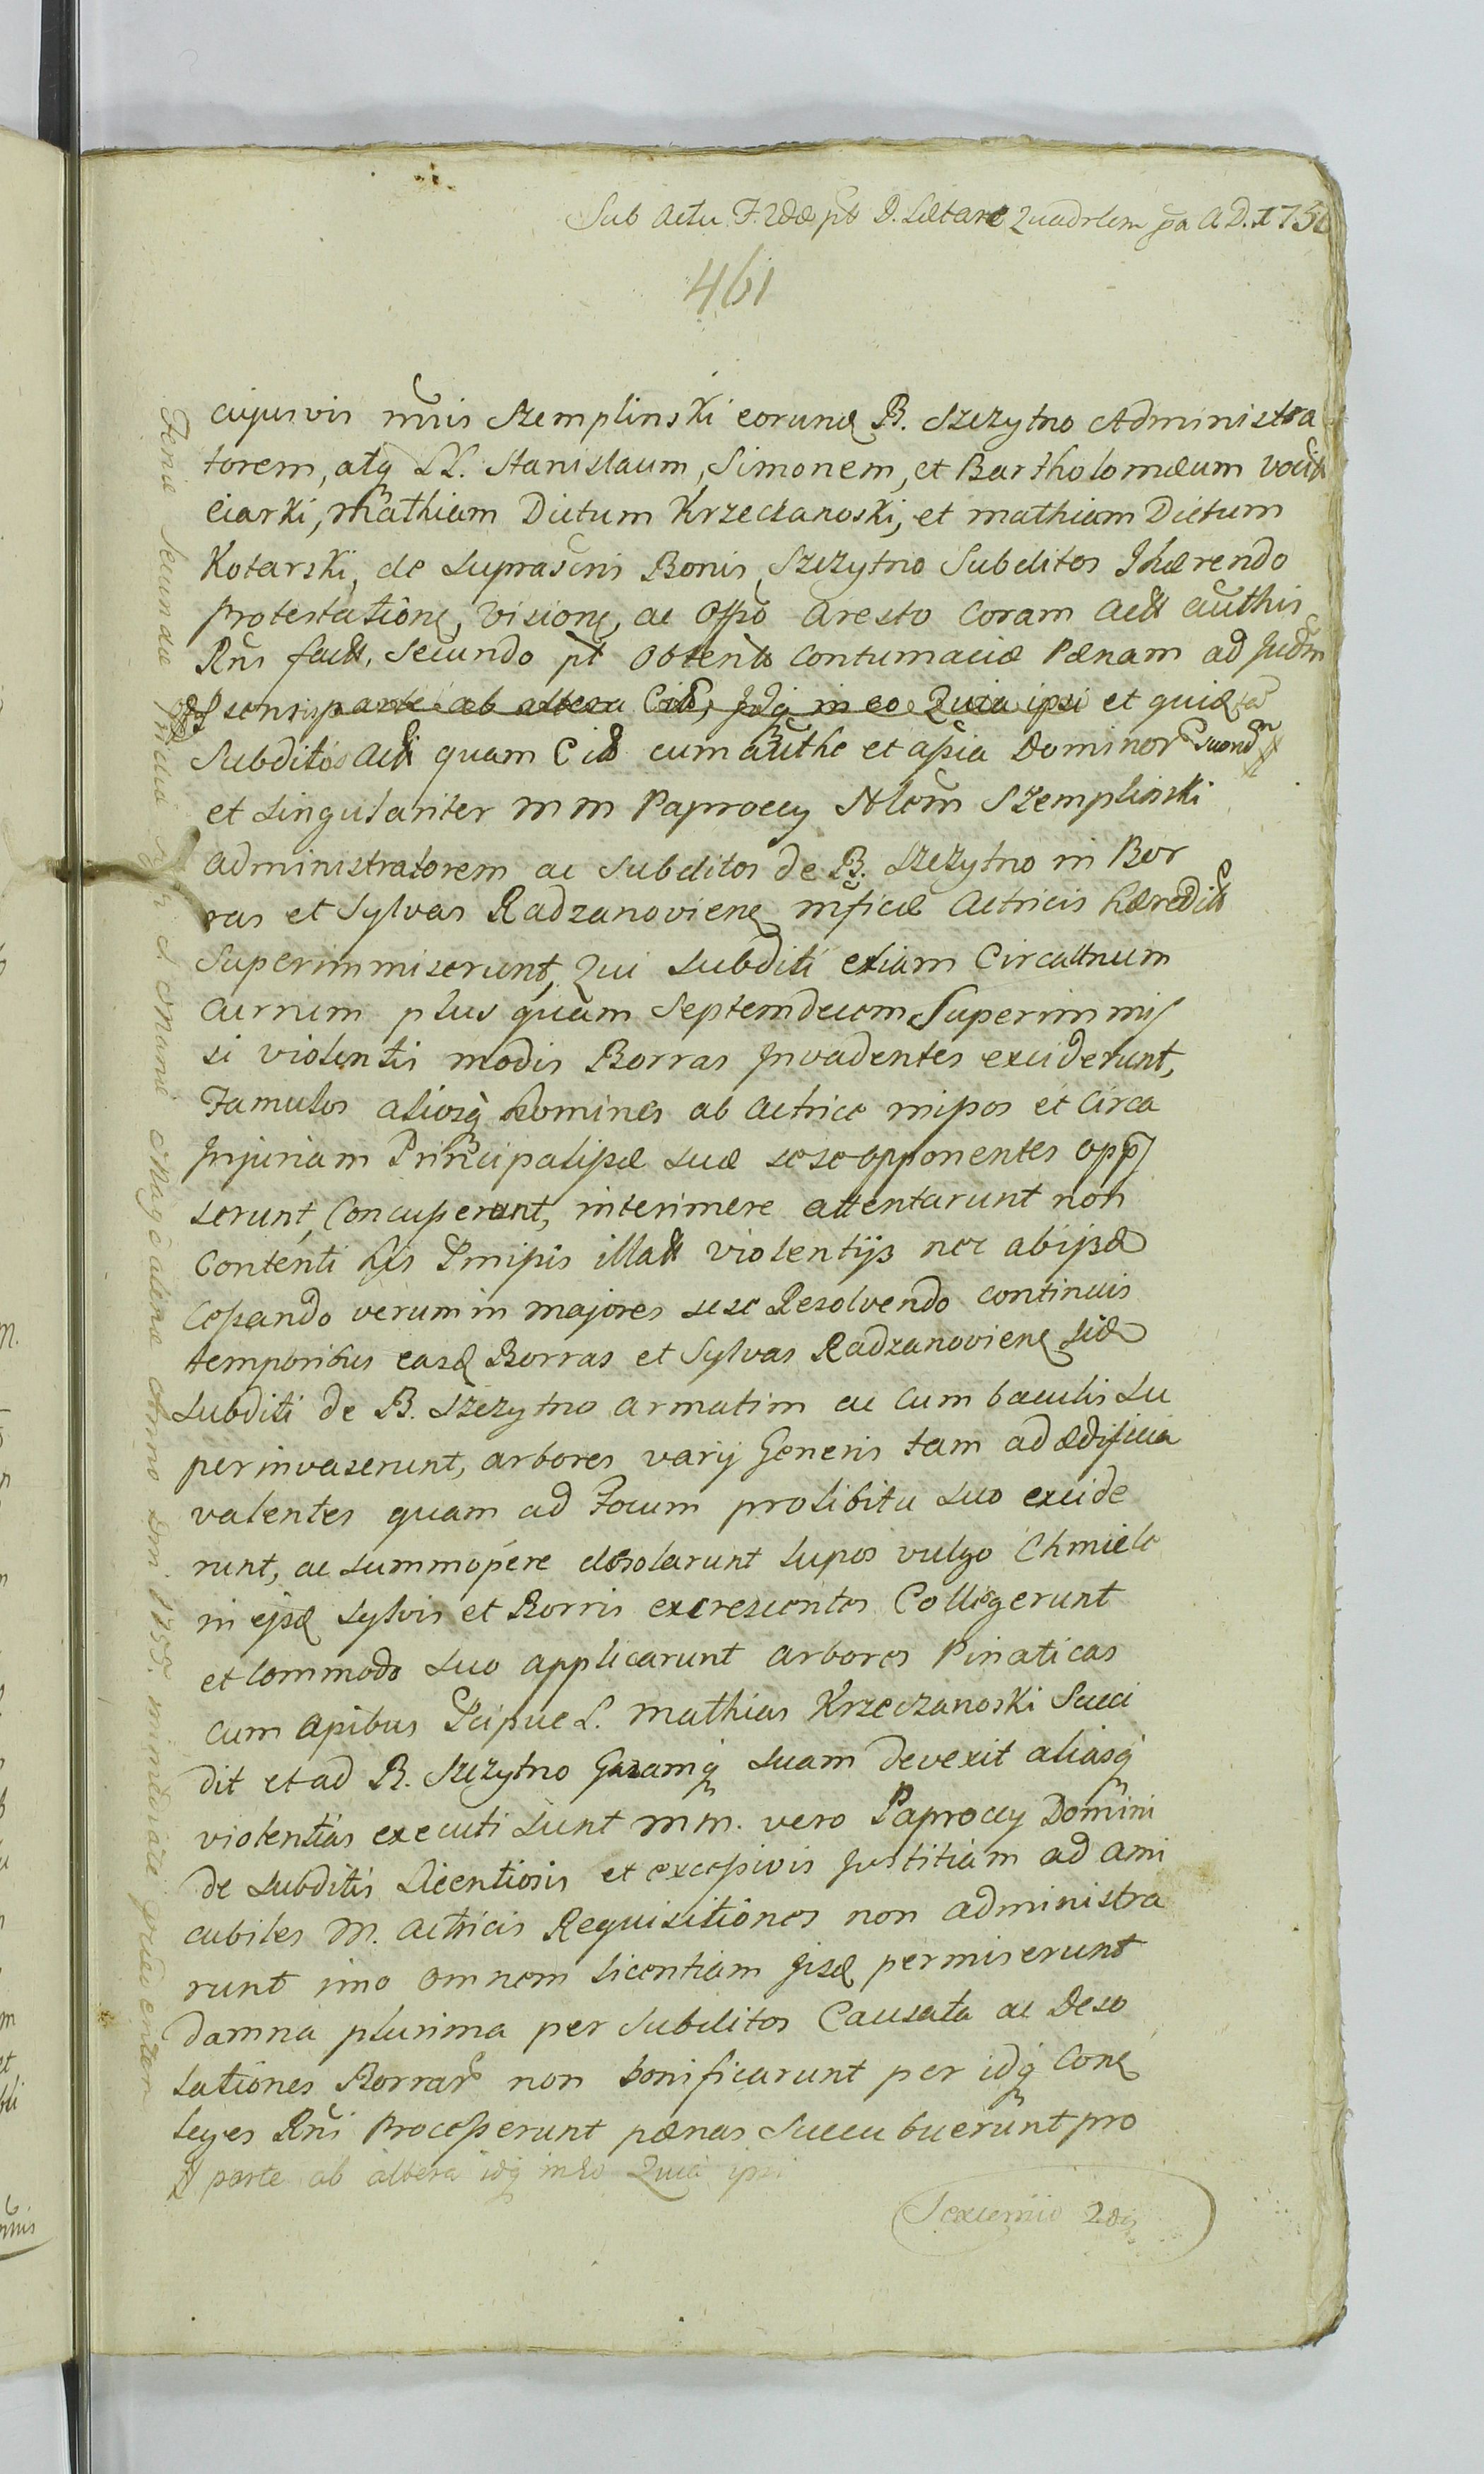 Sub Actu F. 2dæ pt D. Lætare Quadrlem pa A.D. 175
461
cujusvis nnis Szemplinski eorund B. Szczytno Administra
torem, atq LL. Stanislaum, Simonem, et Bartholomæum
ciarki, Mathiam Dictum Krzeczanoski, et Mathiam Dictum
Kotarski, de Suprascris Bonis Szczytno Subditos Jhærendo
protestatione, Visione, ac Offso Aresto Coram Actt authis
Rnis factt, Secundo pt obtento contumaciæ Pænam ad Judm
parte ab altera Citt, Idq in eo Quia ipsi et quidem
Subditos Acti quam Citt cum authe et apia Dominor Suorum
et Singulariter MM Paproccy Nlem Szemplinski
administratorem ac Subditos de B. Szczytno in Bor
ras et Sylvas Radzanoviene mficæ Actricis hæreditt
Superimmiserunt, Qui Subditi etiam Circa
curnum plus quam Septemdecem Superimmis
si violentis modis Borras Jnvadentes exciderunt,
Famulos aliosq homines ab Actrice mipos et Circa
Jnjuriam Principalissæ Suæ sese opponentes opp
serunt, Concusserunt, interimere attentarunt non
Contenti his Pmissis illatt violentijs nec abipsæ
Cessando verum in majores sese Resolvendo continuis
temporibus easd Borras et Sylvas Radzanoviene
Subditi de B. Szczytno armatim ac cum baculis Su
perinvaserunt, arbores varij Generis tam ad ædificia
valentes quam ad Focum prolibitu Suo excide
runt, ac Summopere desolarunt lupos vulgo Chmiele
in ejsd Sylvis et Borris excrescentes Collegerunt
et Commodo Suo applicarunt arbores Pinaticas
cum apibus Pcipue L. Mathias Krzeczanoski Succi
dit et ad B. Szczytno Gazamq Suam devexit aliasq
violentias executi Sunt MM. vero Paproccy Domini
de Subditis Licentiosis et excessivis Justitiam ad ami
cabiles M. Actricis Requisitiones non administra
runt imo omnem licentiam Jisd permiserunt
damna plurima per Subditos Causata ac Deso
lationes Borrar non bonificarunt per idq Cone
leges Rni Processerunt pænas Succubuerunt pro
parte ab altera idq in eo Quia ipsi
Feria Secunda Anno Dni 175